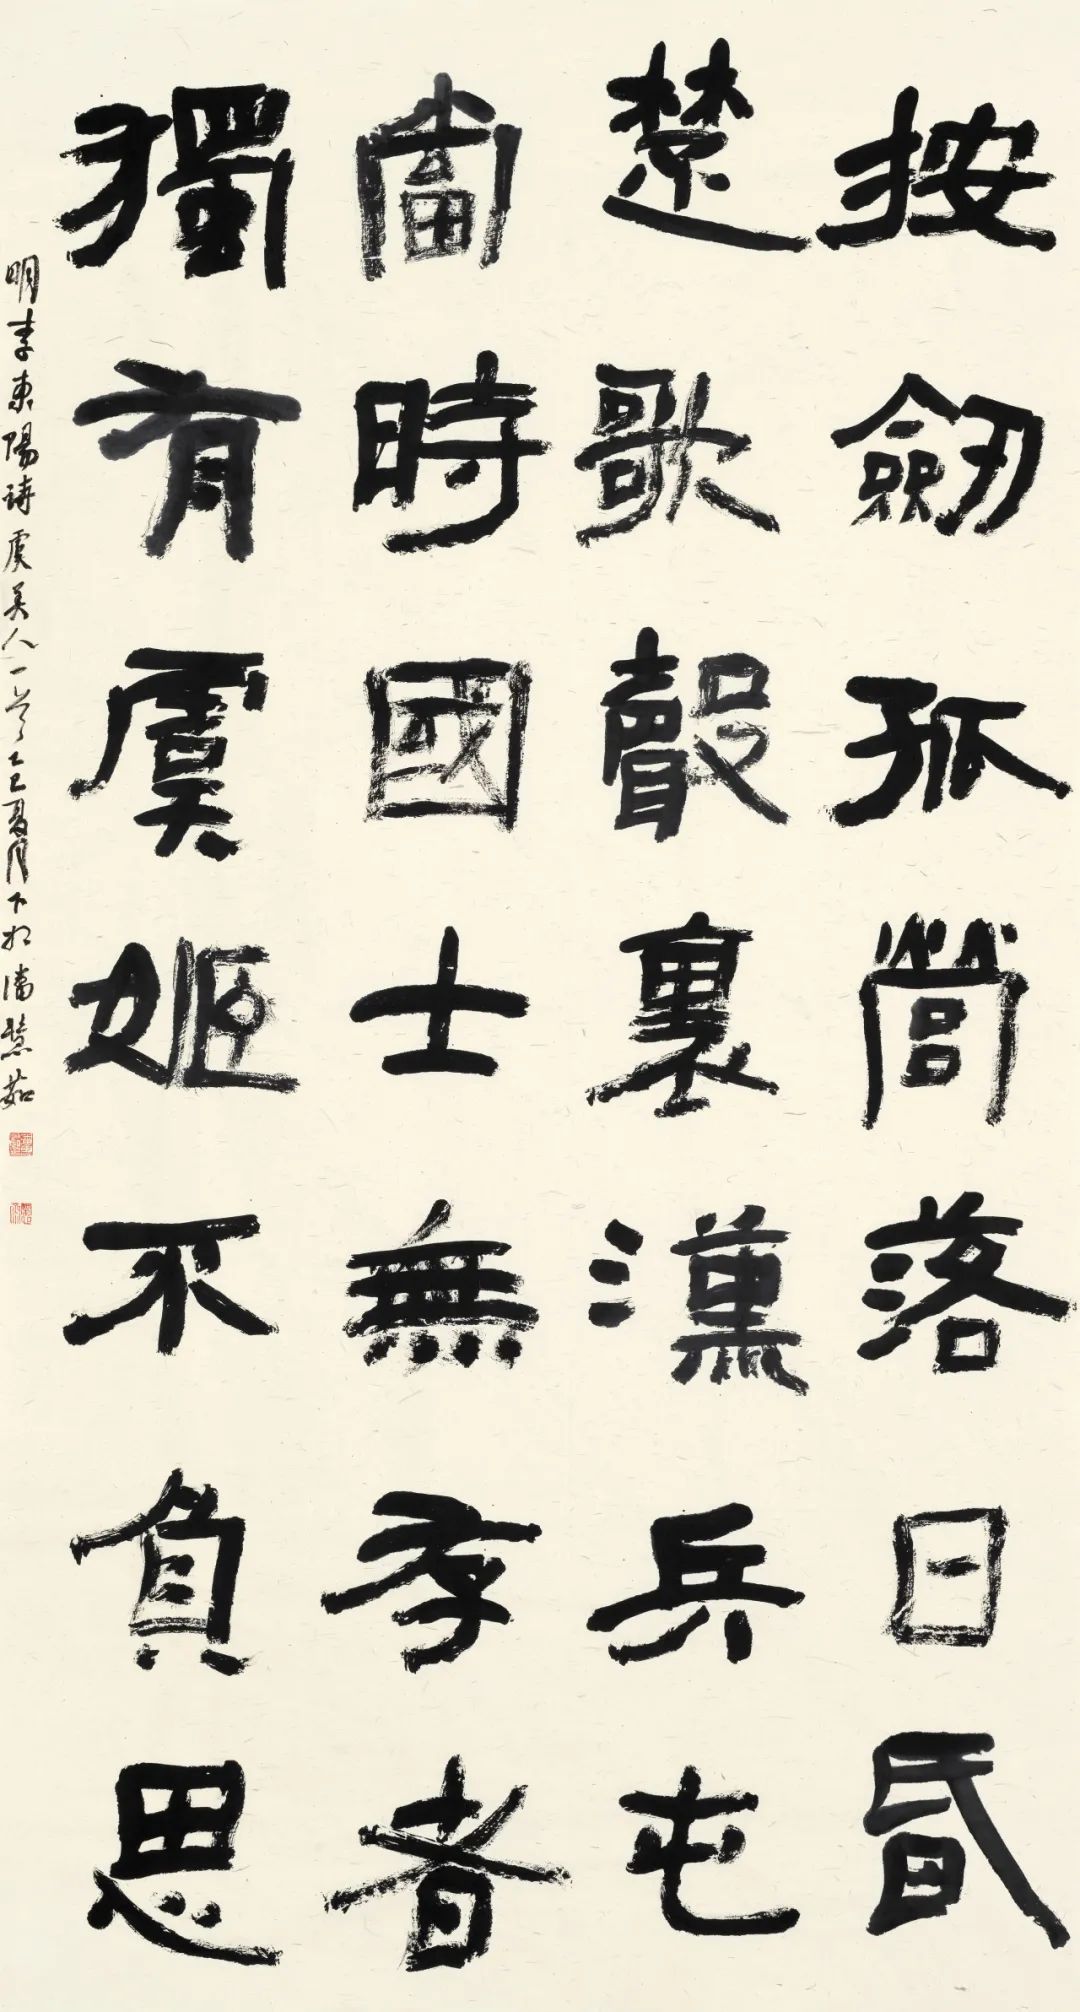 按劒孤營落日昏
楚歌聲裏漢兵屯
當時國士無存者
獨有虞姬不負恩
明李東陽詩虞美人一首乙巳夏月下相潘慧茹